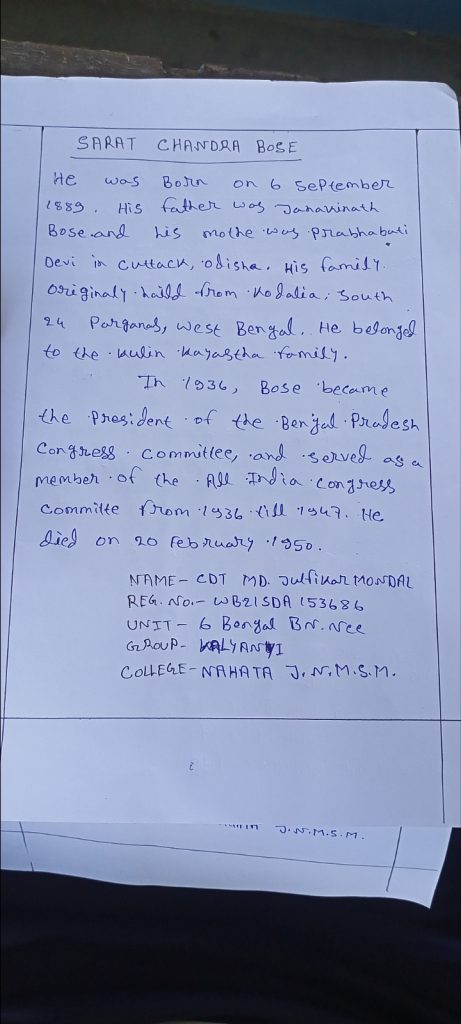 SARAT CHANDRA BOSE
He was Born on 6 September
1889. His father was Janakinath
Bose and his mothe was Prabhabati
Devi in cuttack, odisha. His family
originaly haild from Kodalia, South
24 Parganas, West Bengal. He belonged
to the Kulin Kayastha family.
In 1936, Bose became
the President of the Bengal Pradesh
Congress committee, and served as a
member of the All India congress
committe from 1936 till 1947. He
died on 20 February 1950.
NAME - CDT MD. Julfikar MONDAL
REG. No. - WB21SDA153686
UNIT - 6 Bengal BN. Ncc
GROUP - KALYANI
COLLEGE - NAHATA J.N.M.S.M.
J.N.M.S.M.